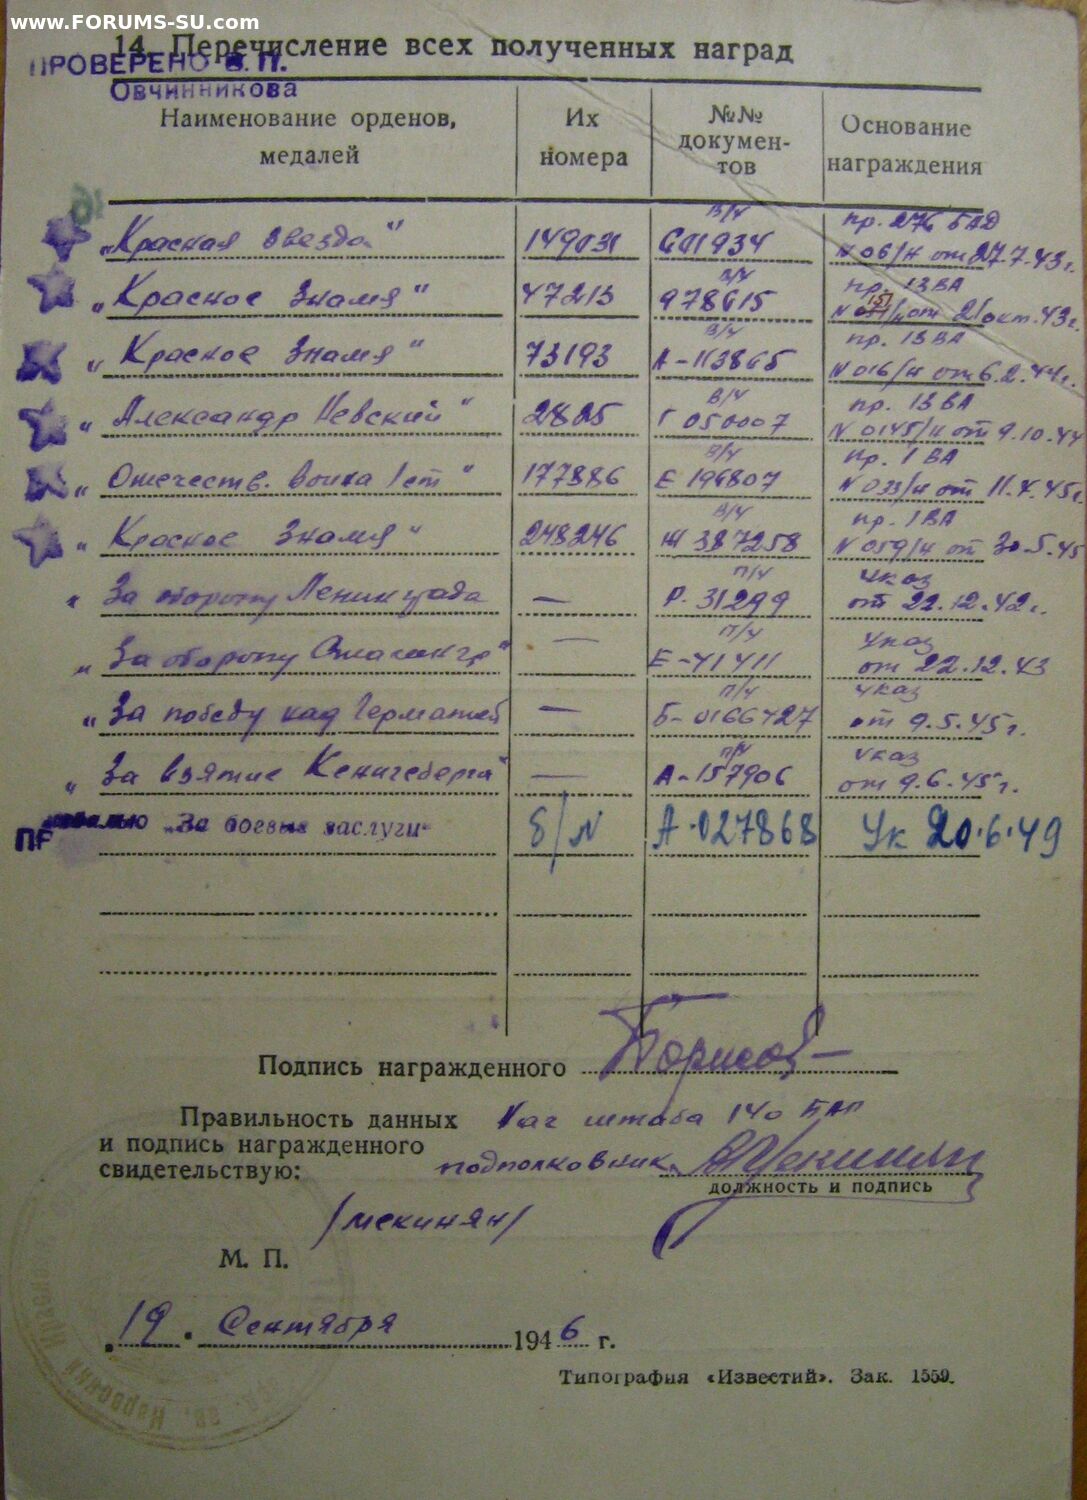 www.FORUMS-SU.com
14. Перечисление всех полученных наград
ПРОВЕРЕНО В.П.
Овчинникова
Наименование орденов, медалей
Их номера
№№ документов
Основание награждения
„Красная звезда" 149031 в/ч 601934 пр. 276 БАД N 06/н от 27.7.43г.
„Красное Знамя" 47213 в/ч 978615 пр. 13 ВА от 21 окт. 43г.
„Красное Знамя" 73193 в/ч А-113865 пр. 13 ВА N 016/н от 6.2.44г.
„Александр Невский" 2825 в/ч Г 050007 пр. 13 ВА N 0145/н от 9.10.44
„Отечеств. война 1 ст" 177886 в/ч Е 196807 пр. 1 ВА N 033/н от 11.4.45г
„Красное Знамя" 248246 в/ч Ж 387258 пр. 1 ВА N 059/н от 30.5.45
„За оборону Ленинграда — п/ч Р. 31299 Указ от 22.12.42г.
„За оборону — п/ч Е-41411 Указ от 22.12.43
„За победу над Германией — п/ч Б-0166427 Указ от 9.5.45г.
„За взятие Кенигсберга" — п/ч А-157906 Указ от 9.6.45г.
„За боевые заслуги" б/N А-027868 Ук 20.6.49
Подпись награжденного Борисов
Правильность данных Нач штаба 140 БАП
и подпись награжденного
свидетельствую: подполковник
должность и подпись
/мекинян/
М. П.
„19" Сентября 1946 г.
Типография «Известий». Зак. 1559.